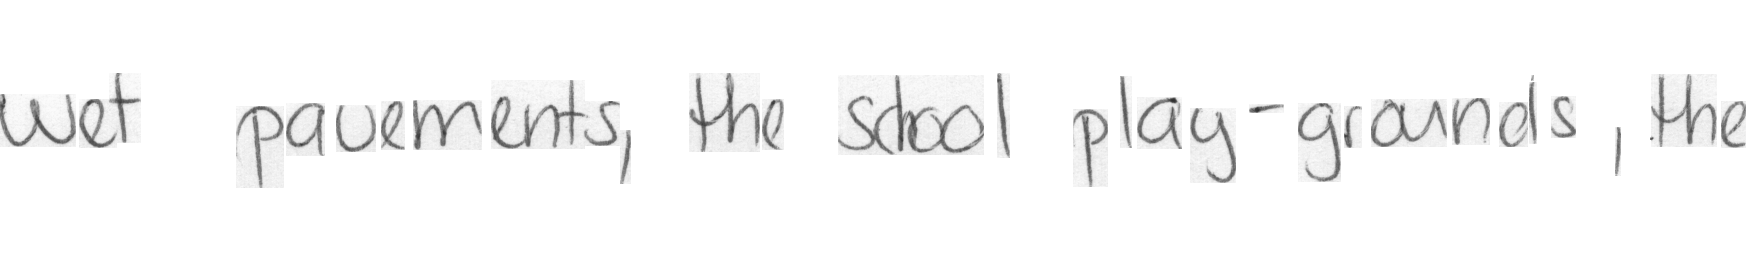 wet pavements, the school play-grounds, the